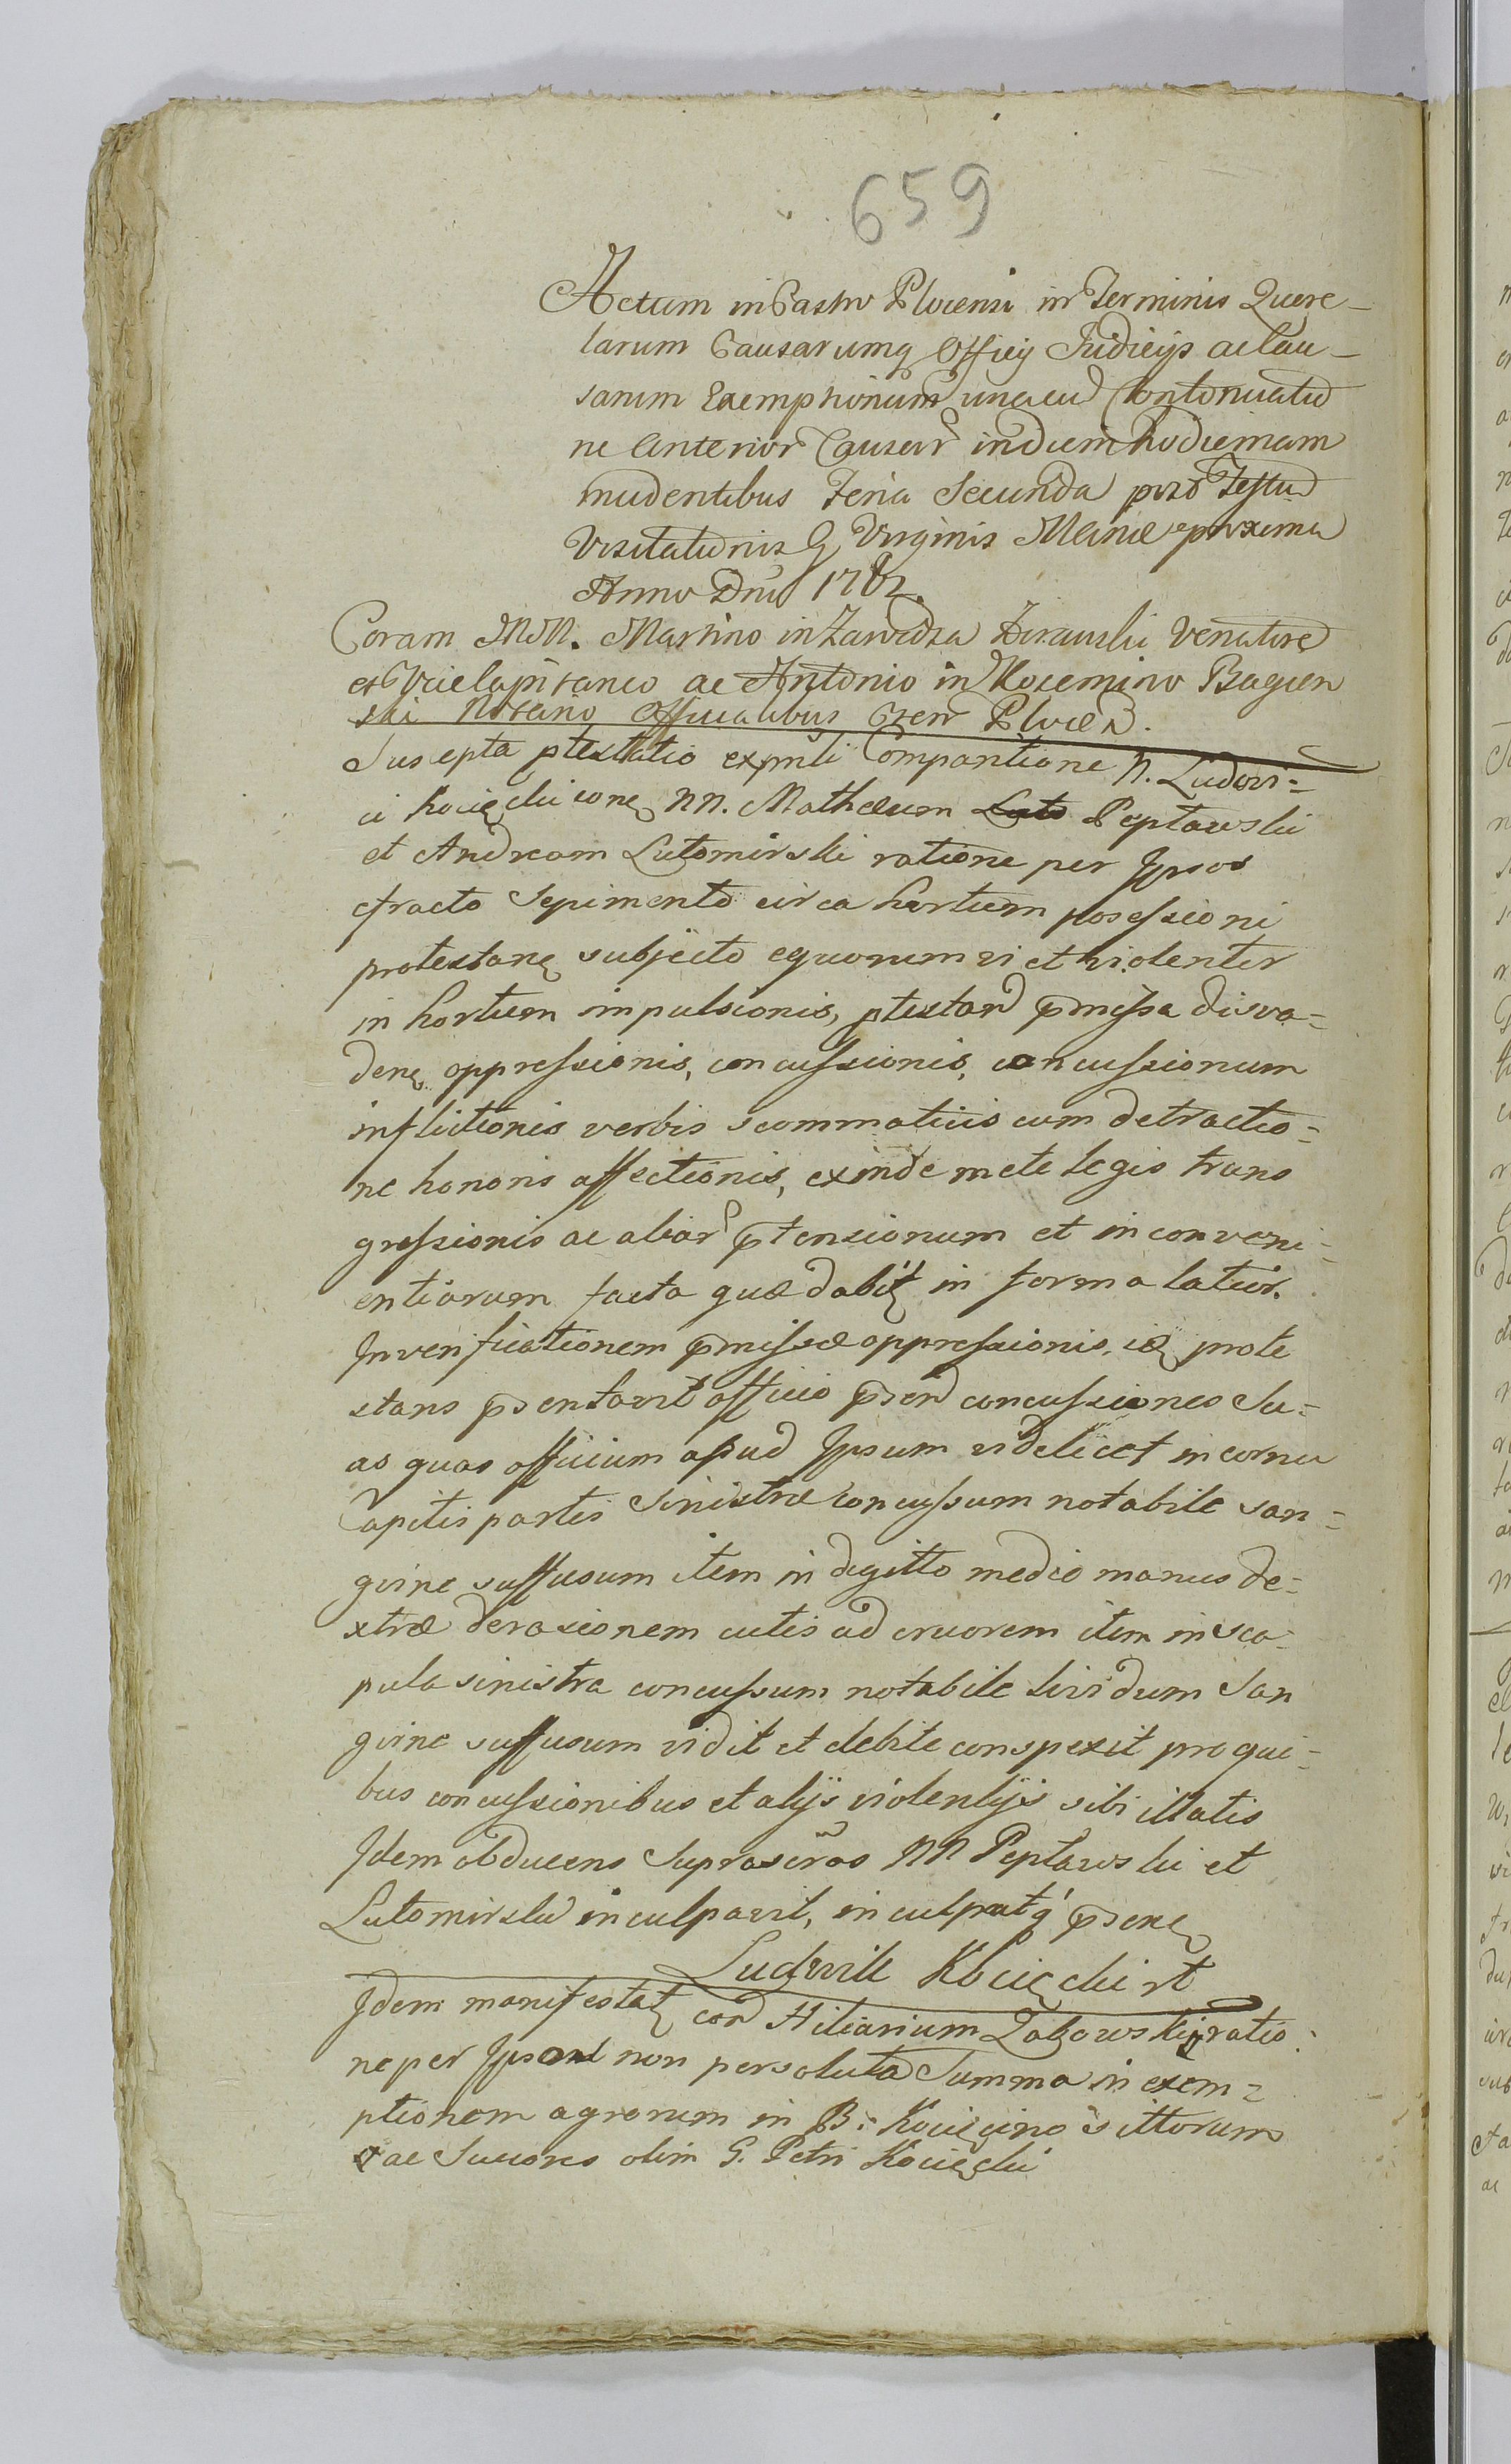 659
Actum in Castro Plocensi in Terminis Quere-
larum Causarumq Officij Judicijs ac Cau-
sarum Exemptionum unacu Continuatio
ne Anterior Causar in diem hodiernam
incidentibus Feria Secunda post Festu
Visitationis G Virginis Mariæ proxima
Anno Dni 1782.
Coram MM. Martino in Zawidza Venatore
et Vicecapitaneo ac Antonio in Kocemino Bagien
ski Notario Officialibus Cren Plocen.
Suscepta ptestatio ex pnli Comparitione N. Ludovi=
ci Kocięcki cone NN. Mathæum Luto Peptawski
et Andream Lutomirski ratione per Ipsos
efracto Sepimento circa hortum posessioni
protestane subjecto equorum vi et violenter
in hortum impulsionis, ptestan pmissa disva=
dene oppressionis, concussionis, concussionum
inflictionis verbis scommaticis cum detractio=
ne honoris affectionis, exinde mete legis trans
gressionis ac aliar ptensionum et inconveni=
entiarum facta quæ dabit in forma latior.
In verificationem pmissæ oppressionis, protte
stans psentavit officio psen concussiones Su=
as quas officium apud Ipsum videlicet in cornu
Capitis partis Sinistræ concussum notabile san=
guine suffusum item in digitto medio manus de=
xtræ derasionem cutis ad cruorem item in sca=
pula sinistra concussum notabile lividum San
guine suffusum vidit et debite conspexit pro qui=
bus concussionibus et alijs violentijs sibi illatis
Idem obducens Suprascrõs NN Peptawski et
Lutomirski inculpavit, inculpatq psene
Ludwik Kocięcki rt
Idem manifestat con Hilarium Zabowski ratio=
ne per Ipsam non persoluta Summa in exem=
ptionem agrorum in B: Kocięcino sittorum
ac Succores olim G. Petri Kocięcki